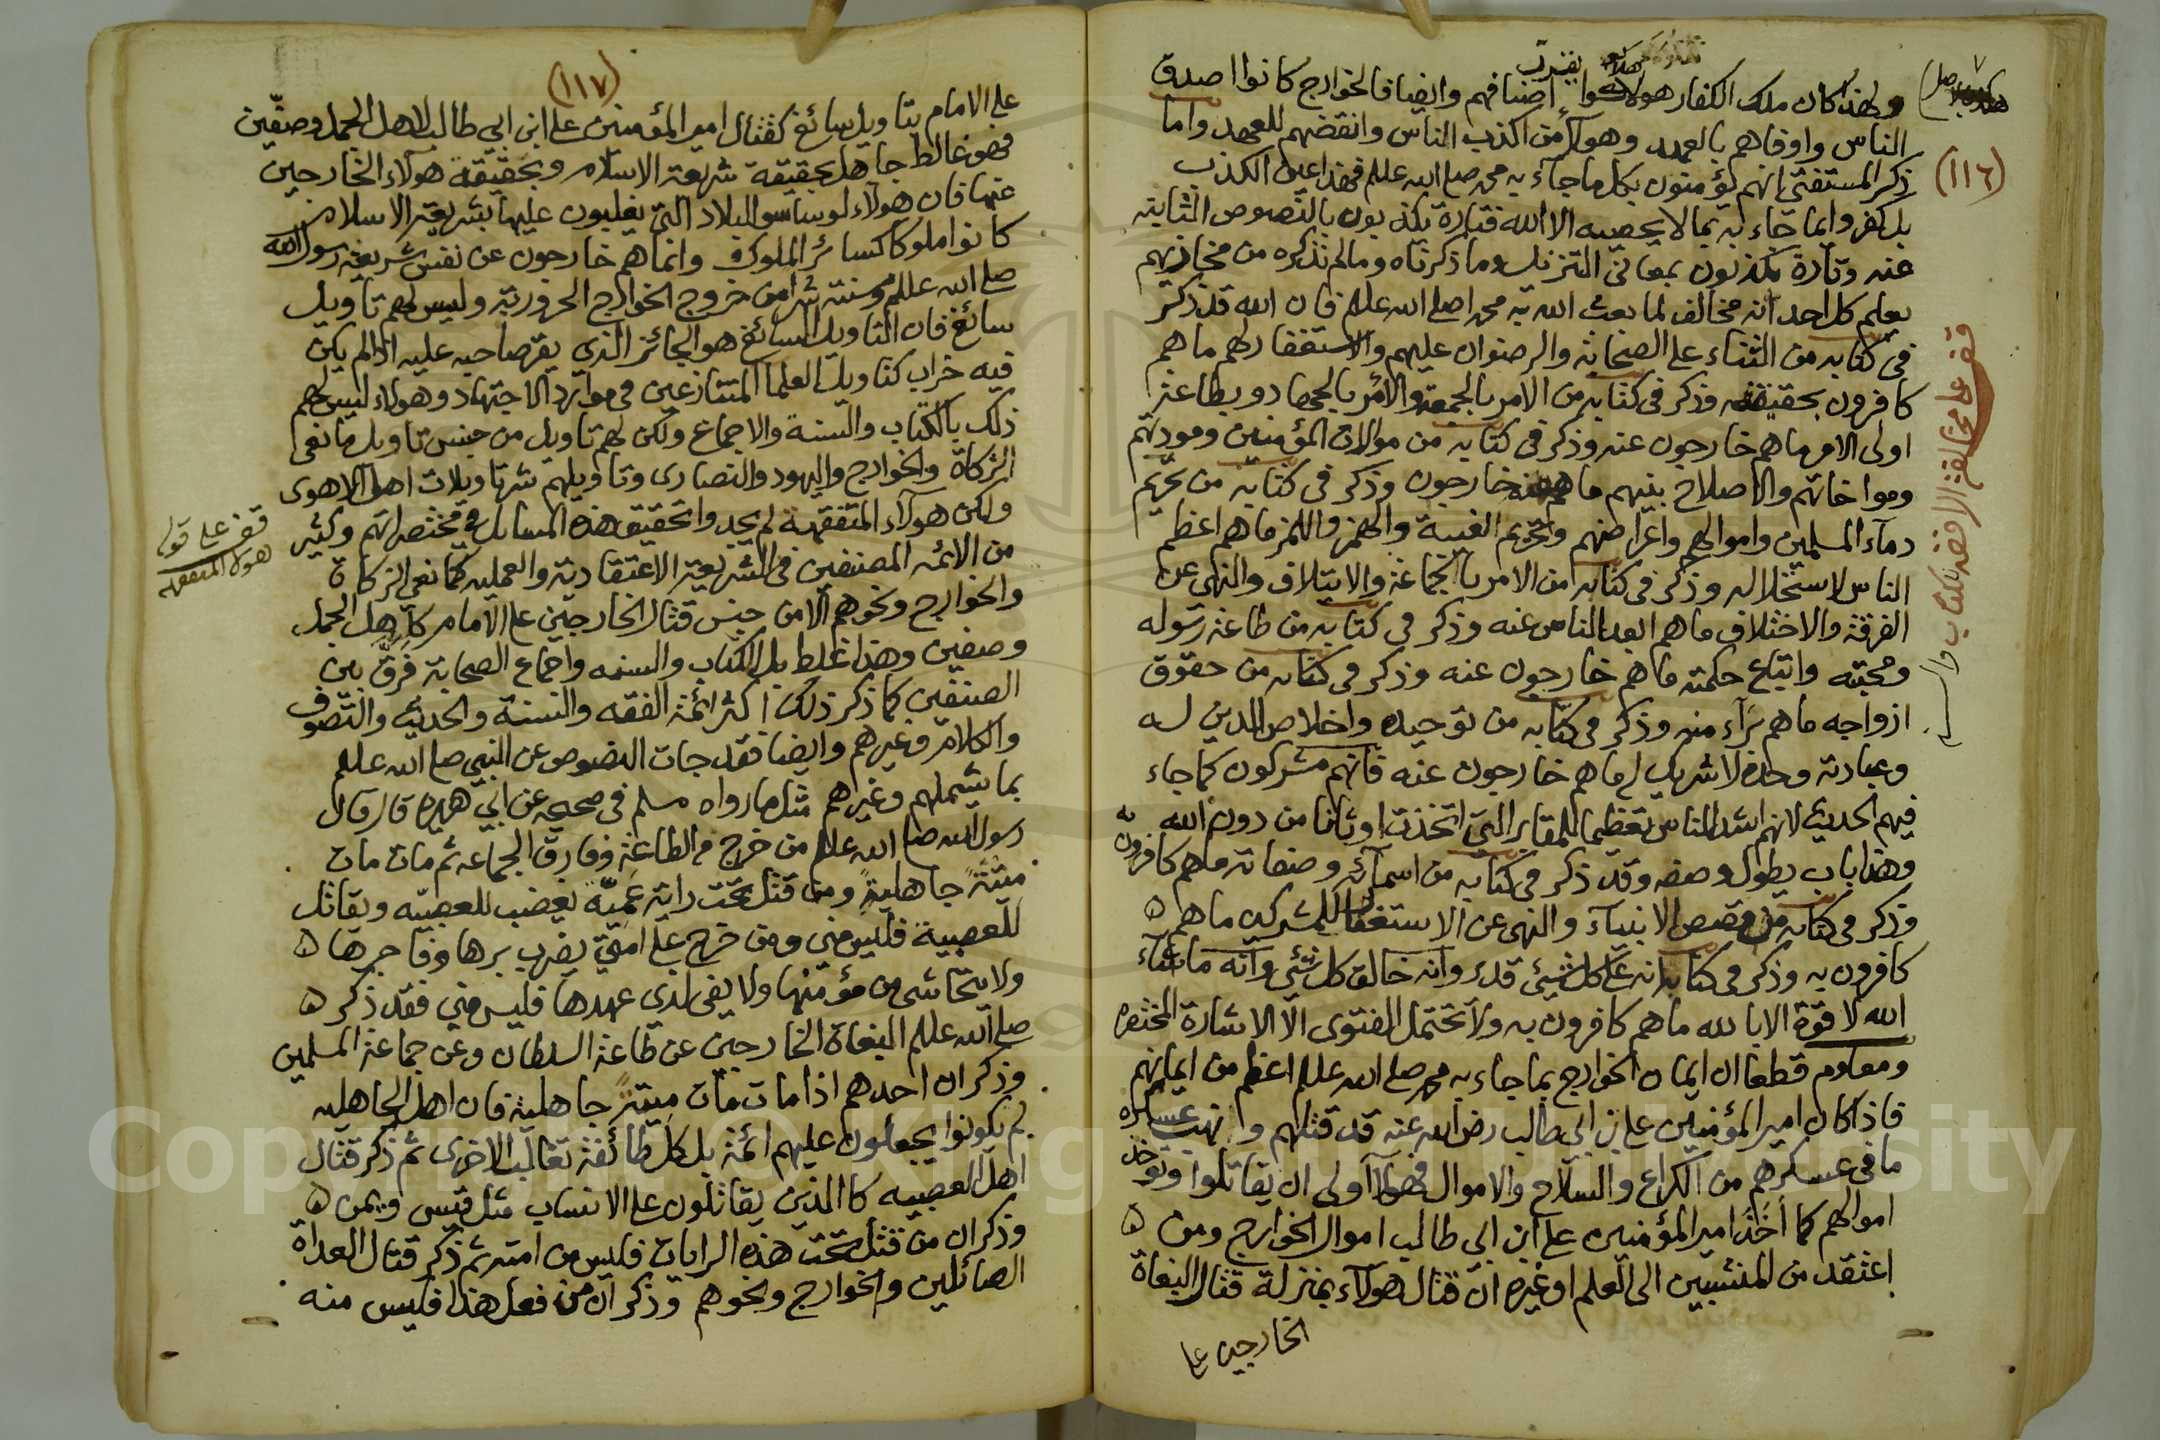 (١١٦)
ولهذا كان ملك الكفار هولاكوا يقرب أصنافهم وايضا فالخوارج كانوا اصدق
الناس واوفاهم بالعهد وهولاء من اكذب الناس وانقضهم للعهد واما
ذكر المستفتى انهم يؤمنون بكل ما جآء به محمد صلى الله عللم فهذا عين الكذب
بل كفروا بما جاء به بما لا يحصيه الا الله فتارة يكذبون بالنصوص الثابته
عنه وتارة يكذبون بمعانى التنزيل وما ذكرناه ومالم نذكره من مخازيهم
يعلم كل احد انه مخالف لما بعث الله به محمدا صلى الله عللم فان الله قد ذكر
فى كتابه من الثناء على الصحابة والرضوان عليهم والاستغفار لهم ما هم
كافرون بحقيقته وذكر فى كتابه من الامر بالجمعة والامر بالجهاد وبطاعة
اولى الامر ما هم خارجون عنه وذكر فى كتابه من موالاة المؤمنين ومودتهم
ومواخاتهم والاصلاح بينهم ما هم عنه خارجون وذكر فى كتابه من تحريم
دمآء المسلمين واموالهم واعراضهم وتحريم الغيبة والهمز واللمز ما هم اعظم
الناس استحلالا له وذكر فى كتابه من الامر بالجماعة والايتلاف والنهى عن
الفرقة والاختلاف ما هم ابعد الناس عنه وذكر فى كتابه من طاعة رسوله
ومحبته واتباع حكمته ما هم خارجون عنه وذكر فى كتابه من حقوق
ازواجه ما هم برآء منه وذكر فى كتابه من توحيده واخلاص الدين له
وعبادته وحده لا شريك له ما هم خارجون عنه فانهم مشركون كما جاء
فيهم الحديث لانهم اشد الناس تعظيما للمقابر التى اتخذت اوثانا من دون الله
وهذا باب يطول وصفه وقد ذكر فى كتابه من اسمآئه وصفاته ما هم كافرون به
وذكر فى كتابه من قصص الانبيآء والنهى عن الاستغفار للمشركين ما هم ه
كافرون به وذكر فى كتابه انه على كل شيئ قدير وانه خالق كل شئ وانه ما شآء
الله لا قوة الا بالله ما هم كافرون به ولا تحتمل الفتوى الا الاشارة المختصره
ومعلوم قطعا ان ايمان الخوارج بما جاء به محمد صلى الله عللم اعظم من ايمانهم
فاذا كان امير المؤمنين على بن ابى طالب رضى الله عنه قد قتلهم ونهب عسكره
ما فى عسكرهم من الكراع والسلاح والاموال فهولاآ اولى ان يقاتلوا وتوخذ
اموالهم كما أخذ امير المؤمنين على ابن ابى طالب اموال الخوارج ومن ه
اعتقد من المنتسبين الى العلم او غيره ان قتال هولآء بمنزلة قتال البغاة
الخارجين على
قف على مخالفة الرافضة للكتاب
(١١٧)
على الامام بتاويل سائغ كقتال امير المؤمنين على ابن ابى طالب لاهل الجمل وصفّين
فهو غالط جاهل بحقيقة شريعة الاسلام وبحقيقة هولاء الخارجين
عنها فان هولآء لو ساسوا البلاد التى يغلبون عليها بشريعة الاسلام
كانوا ملوكا كسائر الملوك وانما هم خارجون عن نفس شريعة رسول الله
صلى الله عللم وسنته شرا من خروج الخوارج الحرورية وليس لهم تاويل
سائغ فان التاويل السائغ هو الجائز الذى يقر صاحبه عليه اذا لم يكن
فيه خراب كتاويل العلما المتنازعين فى موارد الاجتهاد وهولاء ليس لهم
ذلك بالكتاب والسنة والاجماع ولكن لهم تاويل من جنس تاويل مانعى
الزكاة والخوارج واليهود والنصارى وتاويلهم شر تاويلات اهل الاهوى
ولكن هولآء المتفقهة لم يجدوا تحقيق هذه المسايل فى مختصراتهم وكثير
من الائمه المصنفين فى الشريعة الاعتقادية والعمليه كمانعى الزكاة
والخوارج ونحوهم الا من جنس قتال الخارجين على الامام كأهل الجمل
وصفين وهذا غلط بل الكتاب والسنه واجماع الصحابة فرّق بين
الصنفين كما ذكر ذلك اكثر ائمة الفقه والسنة والحديث والتصوف
والكلام وغيرهم وايضا فقد جات النصوص عن النبى صلى الله عللم
بما يشملهم وغيراهم مثل ما رواه مسلم فى صحيحه عن ابى هريره قال قال
رسول الله صلى الله عللم من خرج من الطاعة وفارق الجماعه ثم مات مات
ميتةً جاهليةً ومن قتل تحت راية عميّة يغضب للعصبيّه ويقاتل
للعصبية فليس منى ومن خرج على امتى يضرب برها وفاجرها ه
ولا يتحاشى من مؤمنها ولا يفى لذى عهدها فليس منى فقد ذكر ه
صلى الله عللم البغاة الخارجين عن طاعة السلطان وعن جماعة المسلمين
وذكر ان احدهم اذا مات مات ميتةً جاهلية فان اهل الجاهليه
لم يكونوا يجعلون عليهم ائمة بل كل طائفة تغالب الاخرى ثم ذكر قتال
اهل العصبيه كالذين يقاتلون على الانساب مثل قيس ويمن ه
وذكر ان من قتل تحت هذه الرايات فليس من امته ثم ذكر قتال العداة
الصائلين والخوارج ونحوهم وذكر ان من فعل هذا فليس منه
قف على قول
هولاء المتفقهه
Copyright © King Saud University